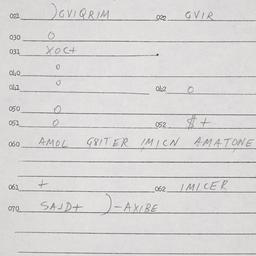 021 )GVIQRIM 022 GVIR
030 O
031 XOC+
040 O
041 O 042 O
050 O
051 O 052 $+
060 AMOL G8ITER IMICN AMATONE
061 + 062 IMICER
070 SAJD+ )-AXIBE